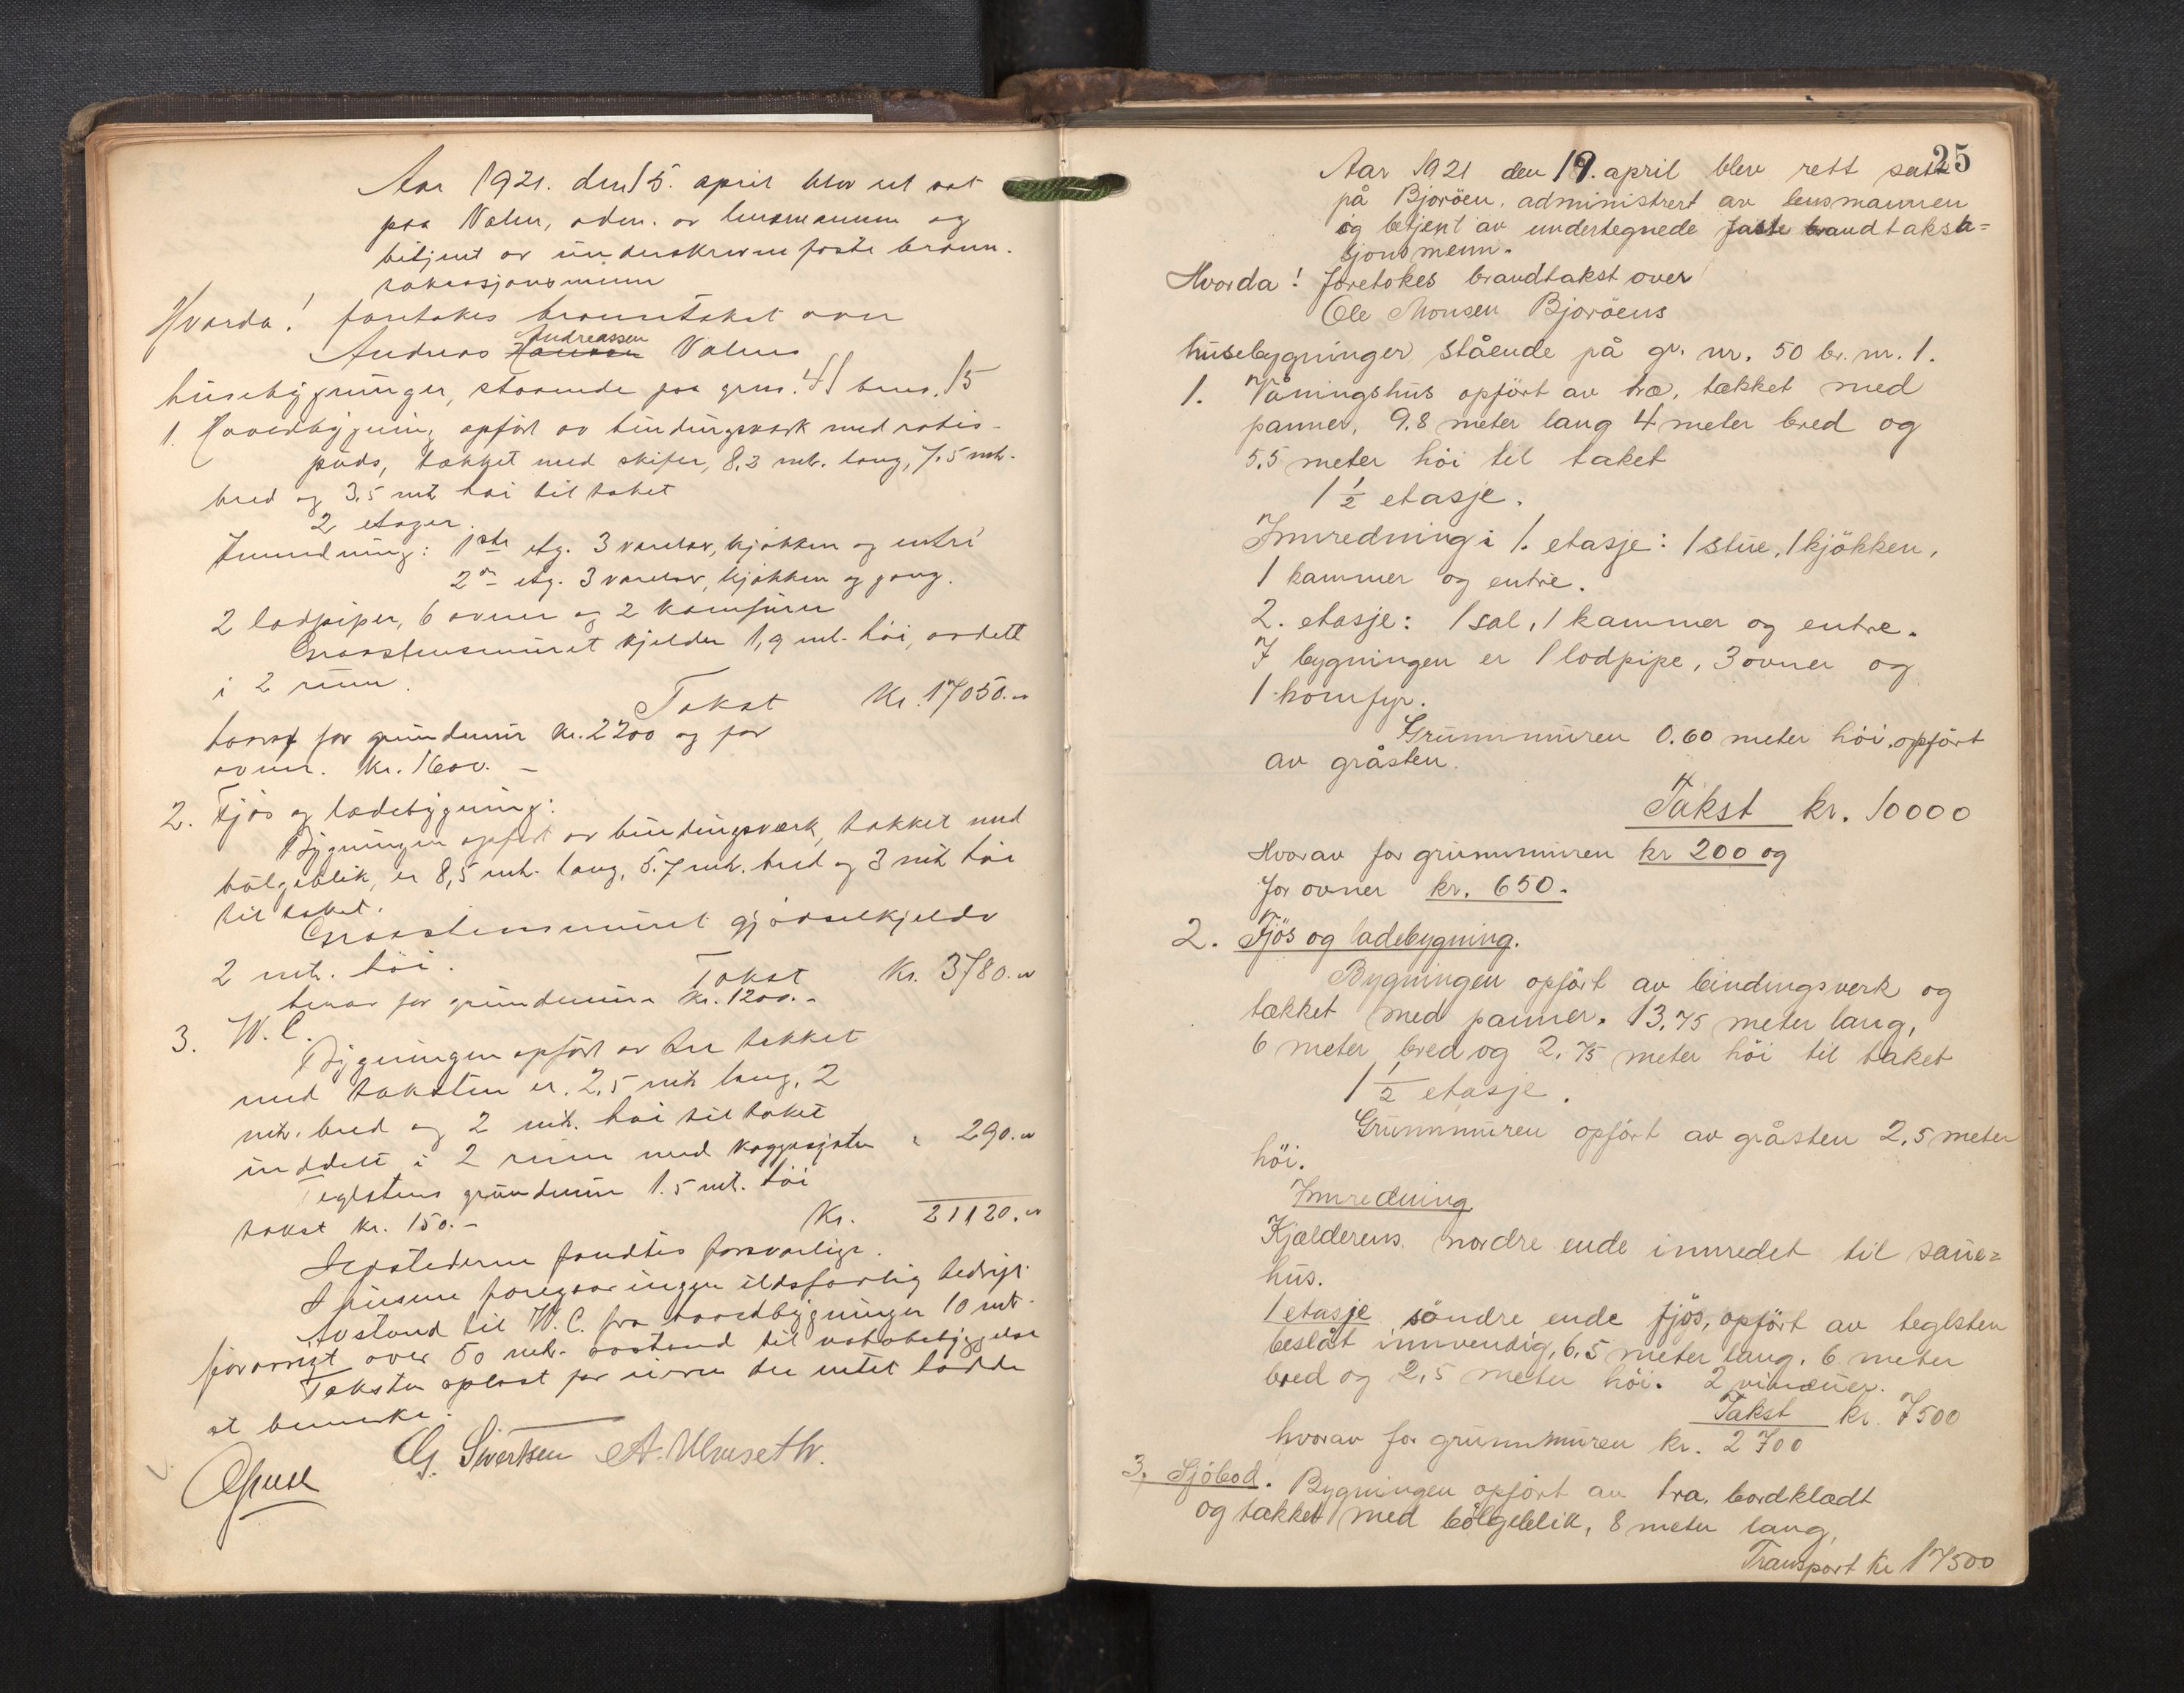 Aar 1921. den 15. april blev ret sat
paa Valen, adm. av lensmannen og
betjent av underskrevne faste brann-
taksasjonsmenn
Hvorda! foretokes branntakst over
Andreassen
Andreas Hansen Valens
husebygninger, staaende paa grnr. 41 brnr. 15
1. Hovedbygning, opført av bindingsverk med rabis-
puds, tækket med skifer, 8,3 mtr. lang, 7.5 mtr.
bred og 3.5 mtr høi til taket
2 etager.
Innredning: 1ste etg. 3 værelser, kjøkken og entré
2den etg. 3 værelser, kjøkken og gang.
2 lodpiper, 6 ovner og 2 komfurer
Graastensmuret kjelder 1,9 mtr. høi, avdelt
i 2 rum.
Takst Kr. 17050.-
hvorav for grundmur kr. 2200 og for
ovner. kr. 1600. -
2. Fjøs og ladebygning:
Bygningen opført av bindingsværk, tækket med
bølgeblik, er 8,5 mtr. lang, 5.7 mtr. bred og 3 mtr høi
til taket.
Graastensmuret gjødselkjelder
2 mtr. høi.
Takst Kr. 3780.-
herav for grundmur kr. 1200.-
3. W. C.
Bygningen opført av træ tækket
med taksten er. 2,5 mtr lang, 2
mtr. bred og 2 mtr. høi til taket
inddelt i 2 rum med 290.-
Teglstens grundmur 1.5 mtr. høi
takst kr. 150.-
Kr. 21120.-
Ildstederne fandtes forsvarlige.
I husene foregaar ingen ildsfarlig bedrift.
Avstand til W.C. fra hovedbygningen 10 mtr.
forøvrigt over 50 mtr. avstand til nabobebyggelse
Taksten oplæst for eieren der intet hadde
at bemerke.
G. Sivertsen A. Ulveseth.
25
Aar 1921 den 19. april blev rett satt
på Bjoröen, administrert av lensmannen
og betjent av undertegnede faste brandtaksa=
sjonsmenn.
Hvorda! foretokes brandtakst over
Ole Monsen Bjoröens
husebygninger, stående på gr. nr. 50 br. nr. 1.
1. Våningshus opfört av træ, tækket med
panner, 9.8 meter lang 4 meter bred og
5.5 meter höi til taket
1 1/2 etasje.
Innredning i 1. etasje: 1 stue, 1 kjökken,
1 kammer og entre.
2. etasje: 1 sal, 1 kammer og entre.
I bygningen er 1 lodpipe, 3 ovner og
1 komfyr.
Grunnmuren 0.60 meter höi, opfört
av gråsten.
Takst kr. 10000
Hvorav for grunnmuren kr 200 og
for ovner kr. 650.
2. Fjös og ladebygning.
Bygningen opfört av bindingsverk og
tækket med panner. 13,75 meter lang,
6 meter bred og 2,75 meter höi til taket
1 1/2 etasje.
Grunnmuren opfört av gråsten 2,5 meter
höi.
Innredning
Kjælderens nordre ende innredet til saue=
hus.
1 etasje söndre ende fjös, opfört av teglsten
beslåt innvendig, 6,5 meter lang, 6 meter
bred og 2,5 meter höi. 2 vinduer.
Takst kr. 7500
hvorav for grunnmuren kr. 2700
3. Sjöbod. Bygningen opfört av træ, bordklædt
og tækket med bölgeblik, 8 meter lang,
Transport kr 17500